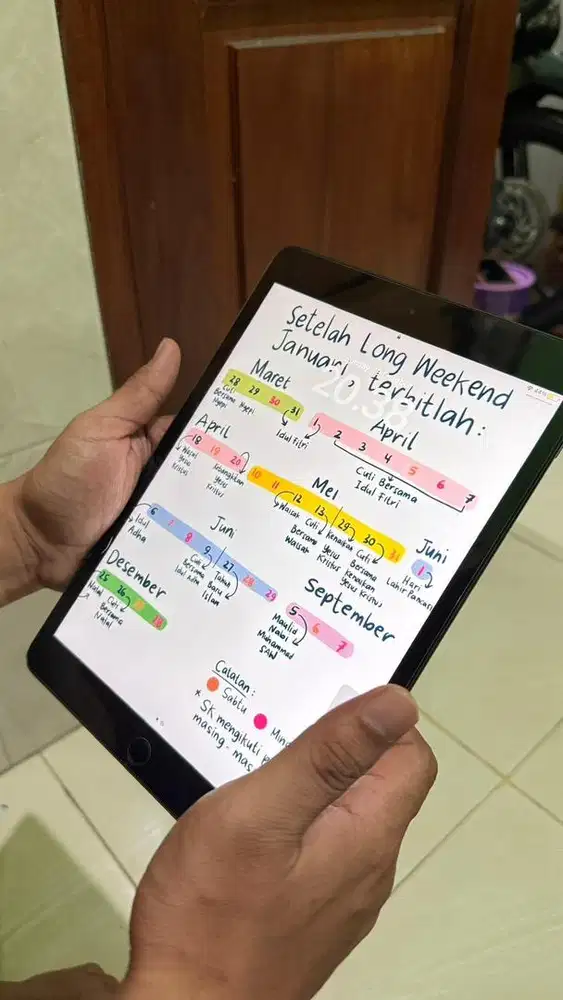 Setelah Long Weekend
Januari, terbitlah:
20.38
Maret
28 29 30 31
Cuti
Bersama
Nyepi
Nyepi
Idul Fitri
April
1 2 3 4 5 6 7
Cuti Bersama
Idul Fitri
April
18 19 20
Wafat
Yesus
Kristus
Kebangkitan
Yesus
Kristus
Mei
10 11 12 13 29 30 31
Waisak
Cuti
Bersama
Waisak
Kenaikan
Yesus
Kristus
Cuti
Bersama
Kenaikan
Yesus Kristus
Juni
1
Hari
Lahir Pancasila
Juni
6 7 8 9 27 28 29
Idul
Adha
Cuti
Bersama
Idul Adha
Tahun
Baru
Islam
September
5 6 7
Maulid
Nabi
Muhammad
SAW
Desember
25 26 27 28
Natal
Cuti
Bersama
Natal
Catatan:
Sabtu
* SK mengikuti
masing-mas